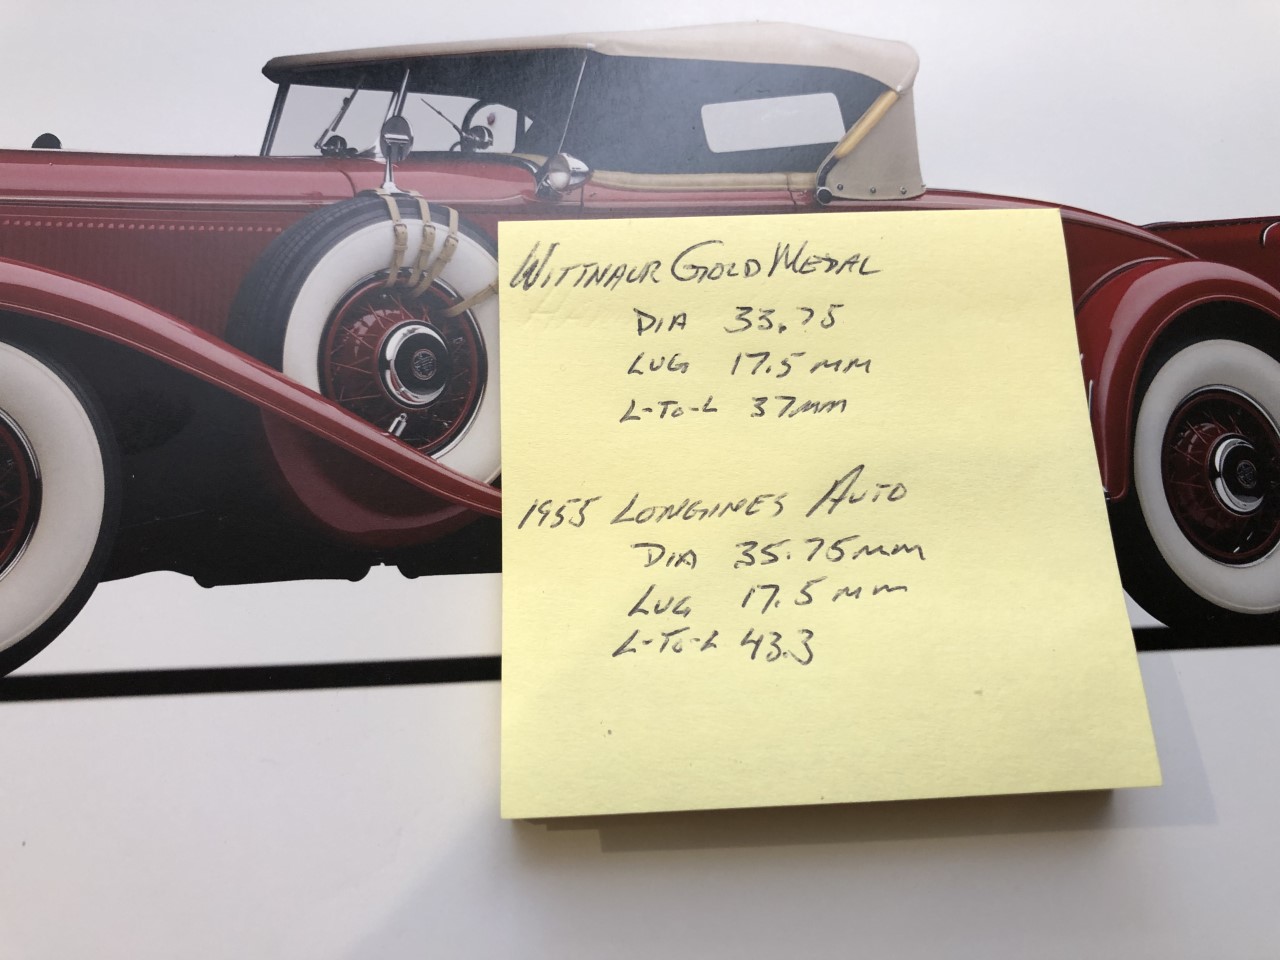 WITTNAUR GOLD MEDAL
DIA 33.75
LUG 17.5 mm
L-TO-L 37mm
1955 LONGINES AUTO
DIA 35.75mm
LUG 17.5 mm
L-TO-L 43.3